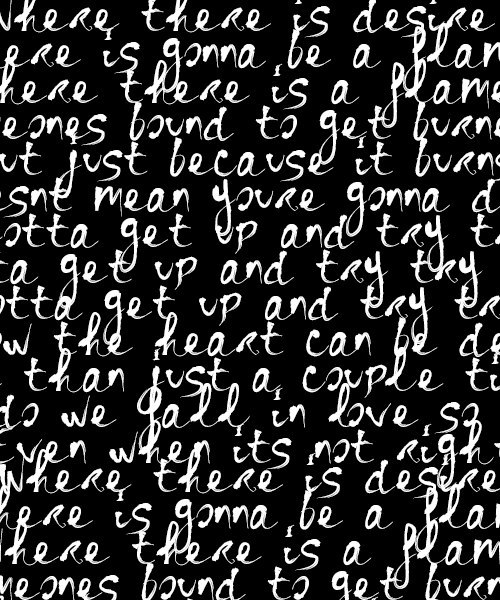 where there is desire
ere is gonna be a flam
here there is a flame
eones bound to get burne
ut just because it burn
snt mean youre gonna d
otta get up and try t
ta get up and try try
otta get up and try tr
ow the heart can be de
than just a couple ti
do we fall in love so
even when its not right
where there is desire
here is gonna be a flam
here there is a flam
meones bound to get burne